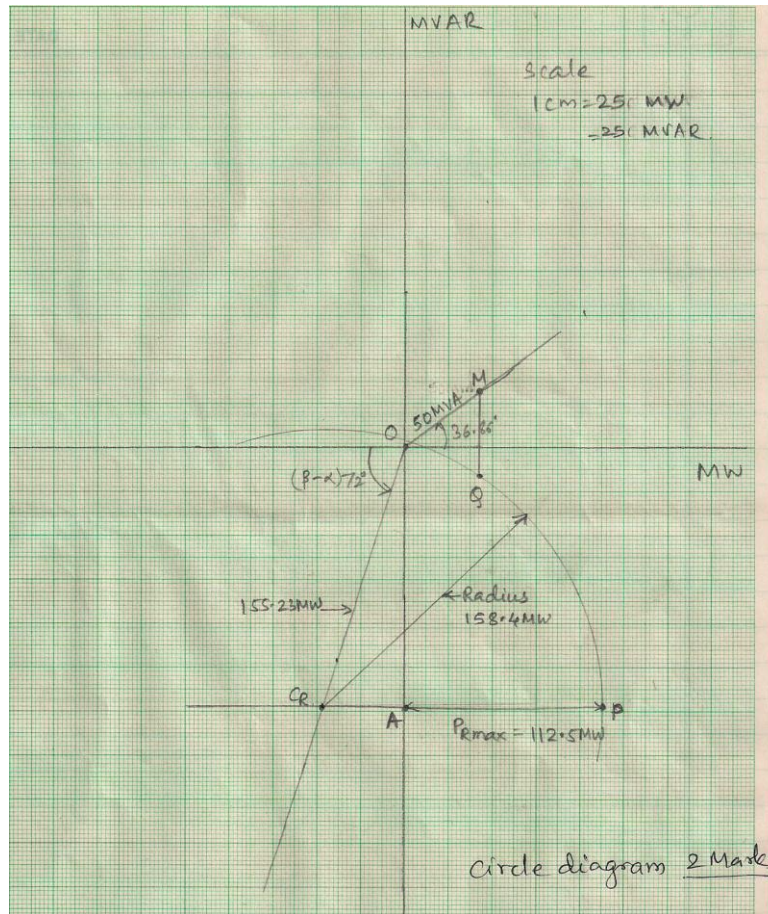 MVAR
Scale
1cm=25 MW
=25 MVAR.
M
50MVA
O
36.86°
(β-α)72°
MW
Q
155.23MW
Radius
158.4MW
CR
A
P
PRmax = 112.5MW
Circle diagram 2 Mark